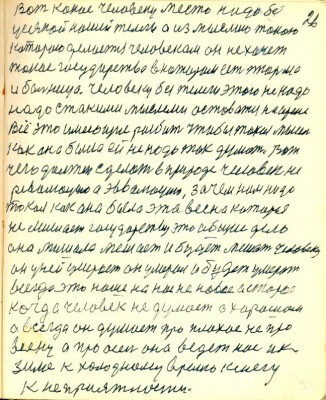 26
Вот какое человеку место надо без
усякой нашей тюли а из мыслию такого
которого делается человекам он не хочет
такое государства в котором ест тюрма
и больница. человеку без тюли этого не надо
надо с такими мыслями оставатся на
Всё это имеющие чтобы таки мысли
как она была ей не подо так думать. Вот
чего должен сделат в природе человек не
революцию а эволюцию, зачем нам надо
такая как она была эта весна которая
не мешает государству это общие дело
она мешала мешает и будет мешат человеку
он у ней умерает он умерал и будет умерат
всегда это наше на нас не новое а старое
когда человек не думает о харошом
а всегда он думает про плахое не про
весну а про осен она ведет нас ик
зиме к холодному время к снегу
к неприятности.